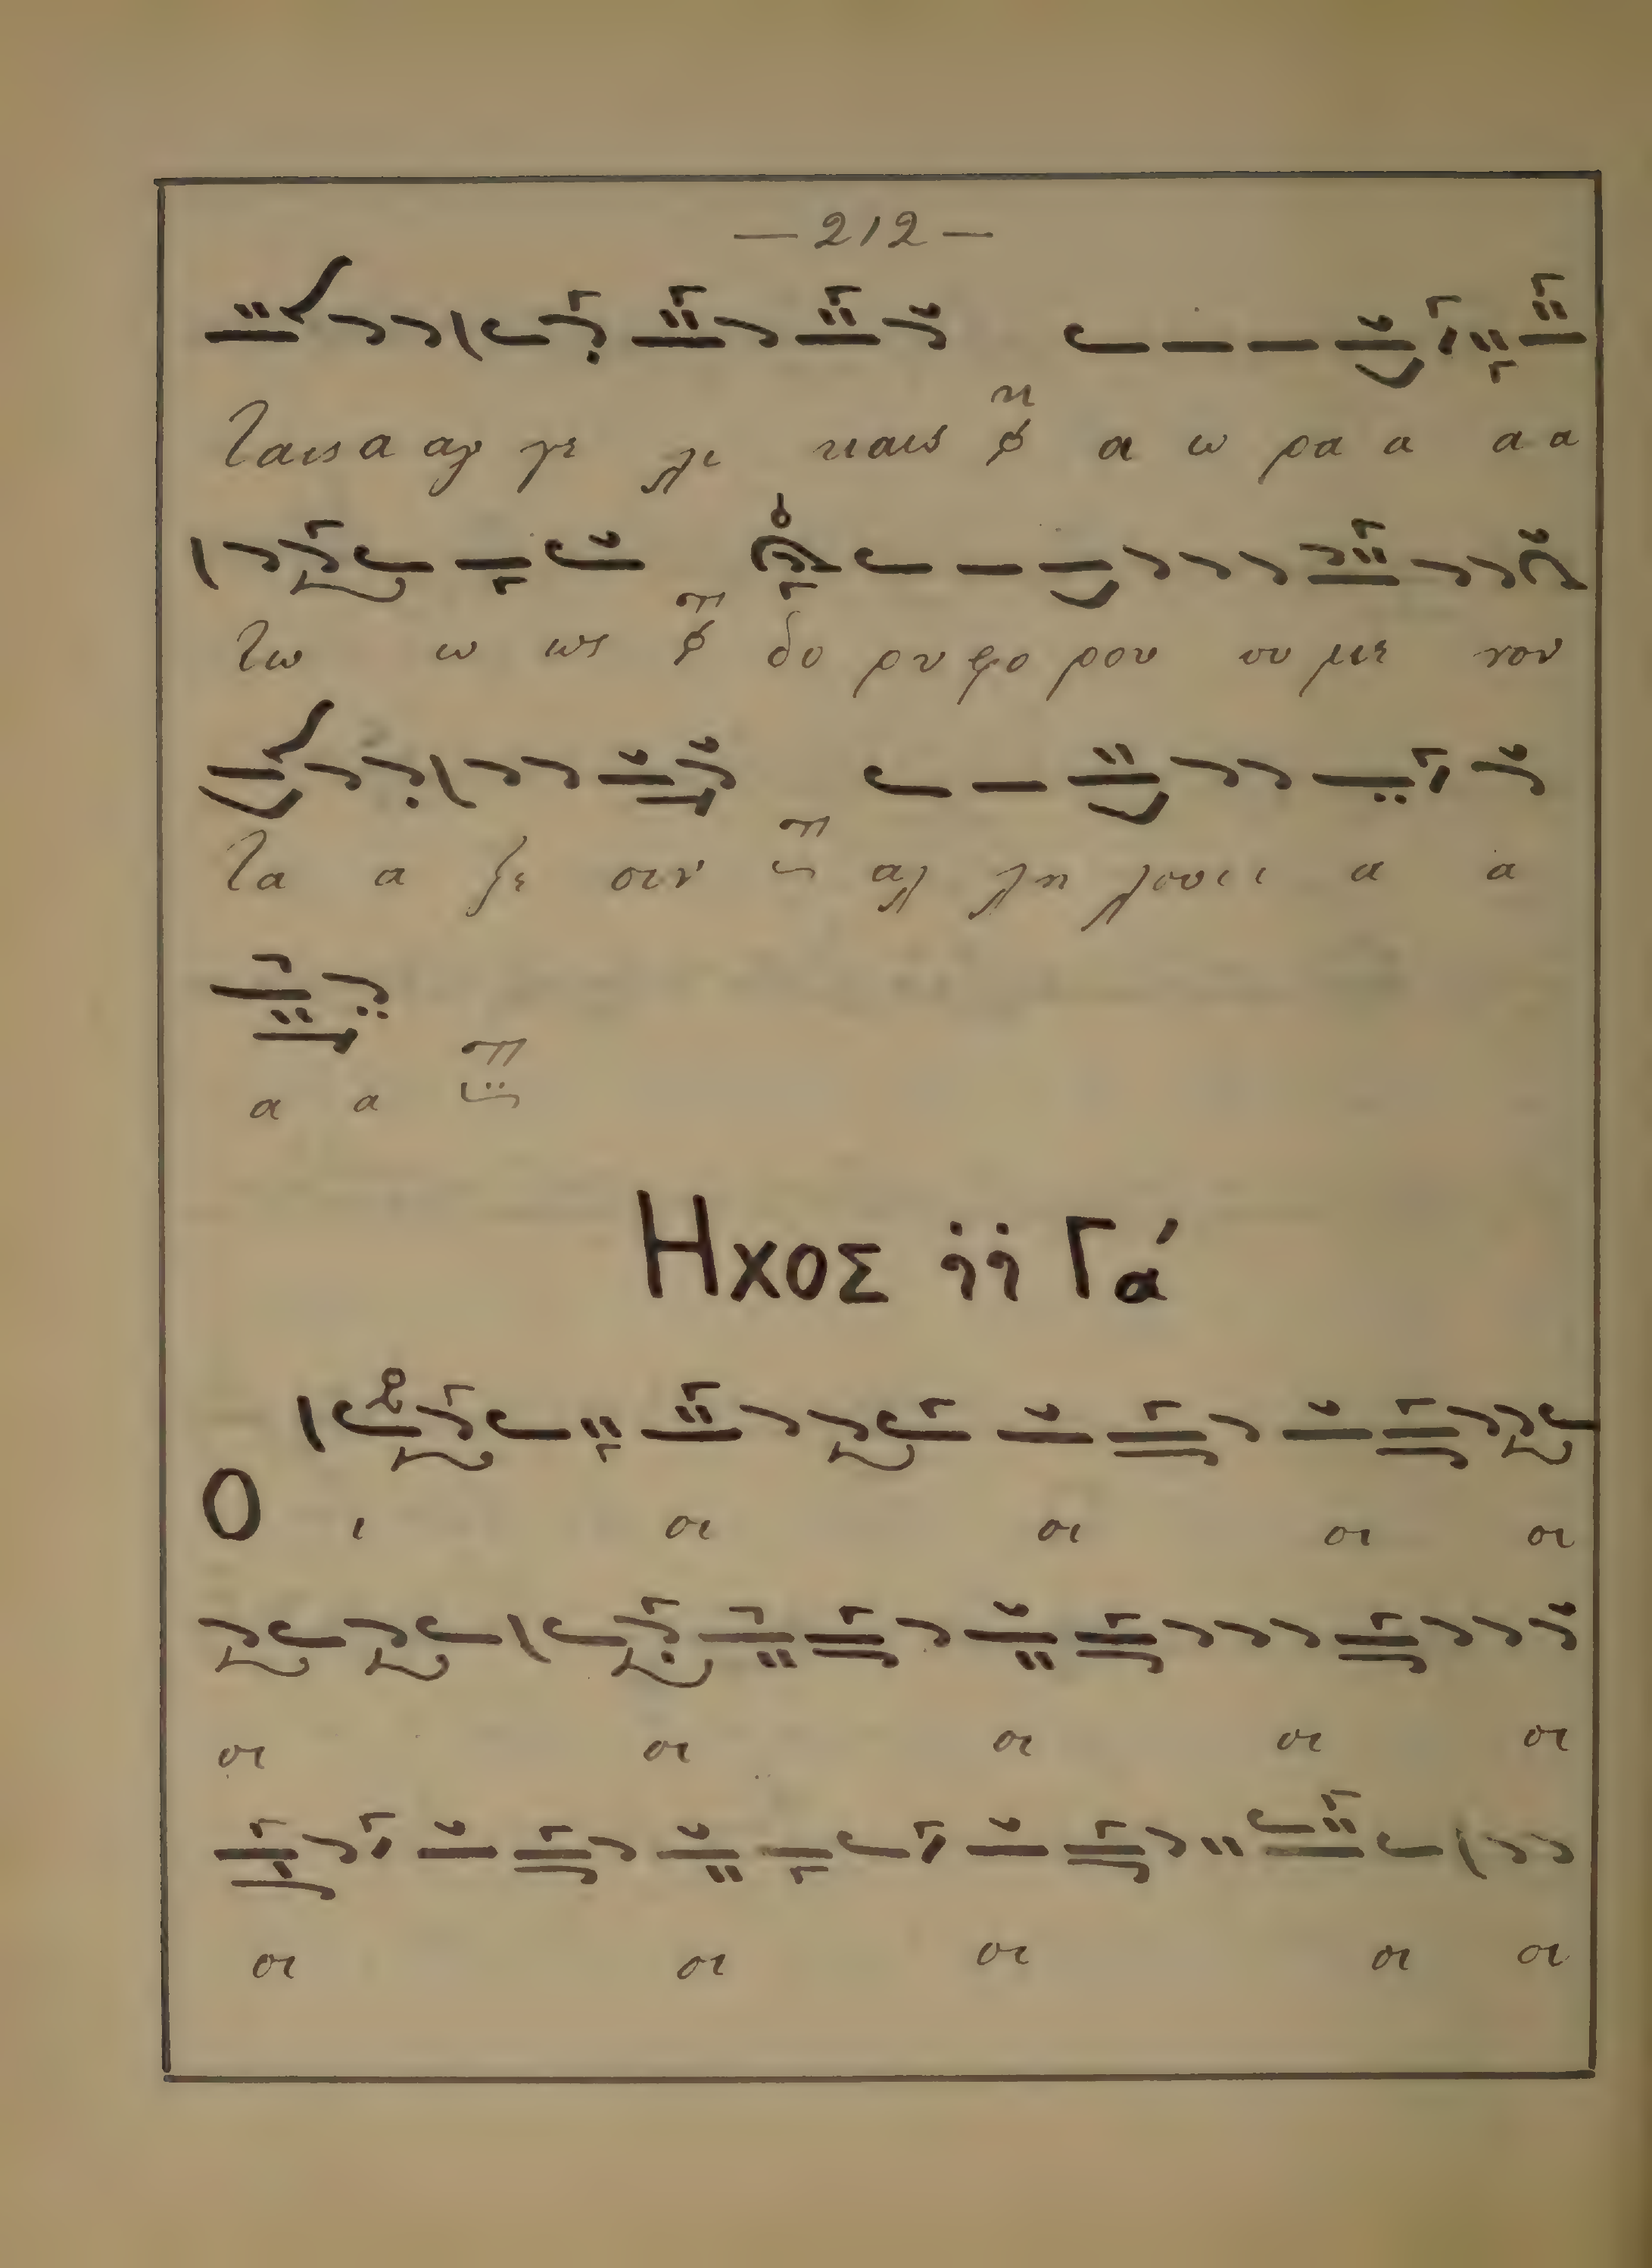 — 212 —
ταις α αγ γε λι καις α ω ρα α α α
τω ω ως δο ρυ φο ρου ου με νον
τα α ξε σιν αλ λη λου ι ι α α
α α
Ηχος Γα
Ο ι οι οι οι οι
οι οι οι οι οι
οι οι οι οι οι